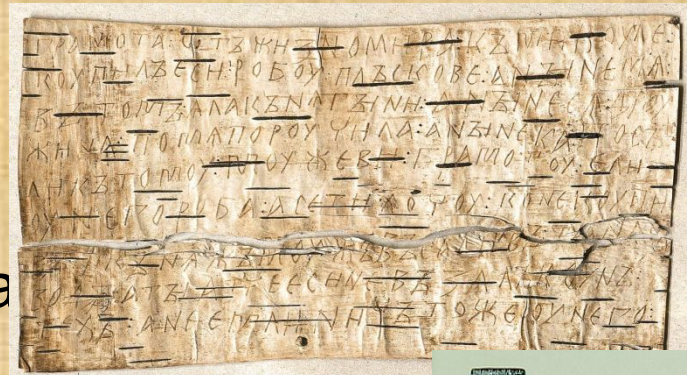 ГРАМОТА : ѠТЪ ЖИЗНОМИРА : КЪ МИКОУЛЕ :
КОУПИЛЪ ЕСИ : РОБОУ : ПЛЪСКОВЕ : А НЫНЕ МѦ :
ВЪ ТОМЪ : ѦЛА КЪНѦГЫНИ : А НЫНЕ СѦ ДРОУ
ЖИНА : ПО МѦ ПОРОУЧИЛА : А НЫНЕ КА : ПОСЪ
ЛИ КЪ ТОМОУ : МОУЖЕВИ : ГРАМОТОУ : Е ЛИ
ОУ НЕГО РОБА : А СЕ ТИ ХОЧОУ : КОНЕ КОУПИ
ВОДЪ : А ТЫ АТЧЕ ЕСИ НЕ ВЪЗАЛЪ КОУНЪ :
ТЕХЪ : А НЕ ЕМЛИ : НИЧЪТО ЖЕ ОУ НЕГО :
а